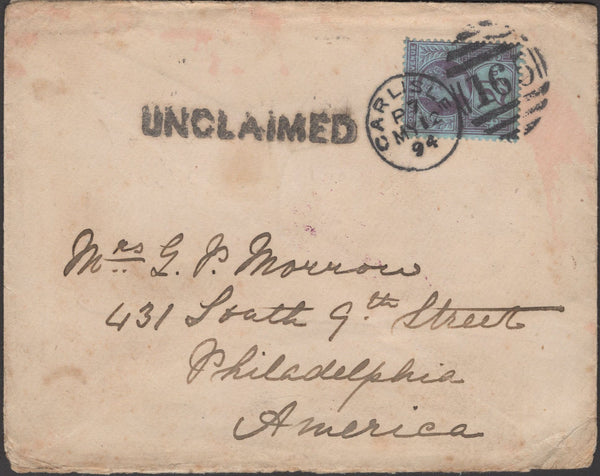 UNCLAIMED
CARLISLE
MY 12
94
165
Mrs. G. P. Morrow
431 South 9th Street
Philadelphia
America